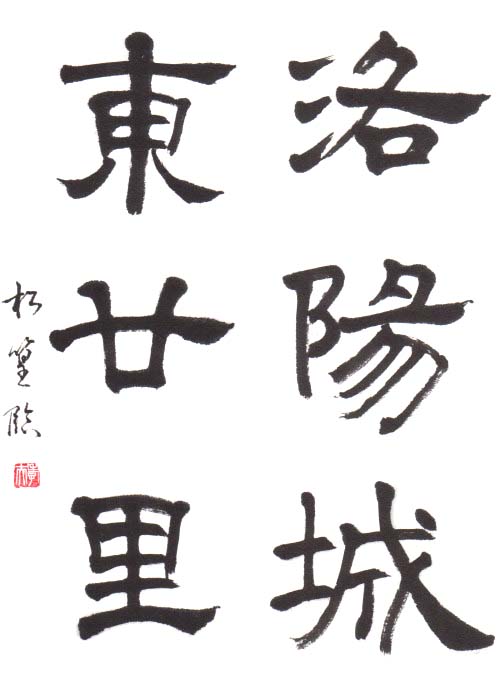 洛陽城
東廿里
松篁臨